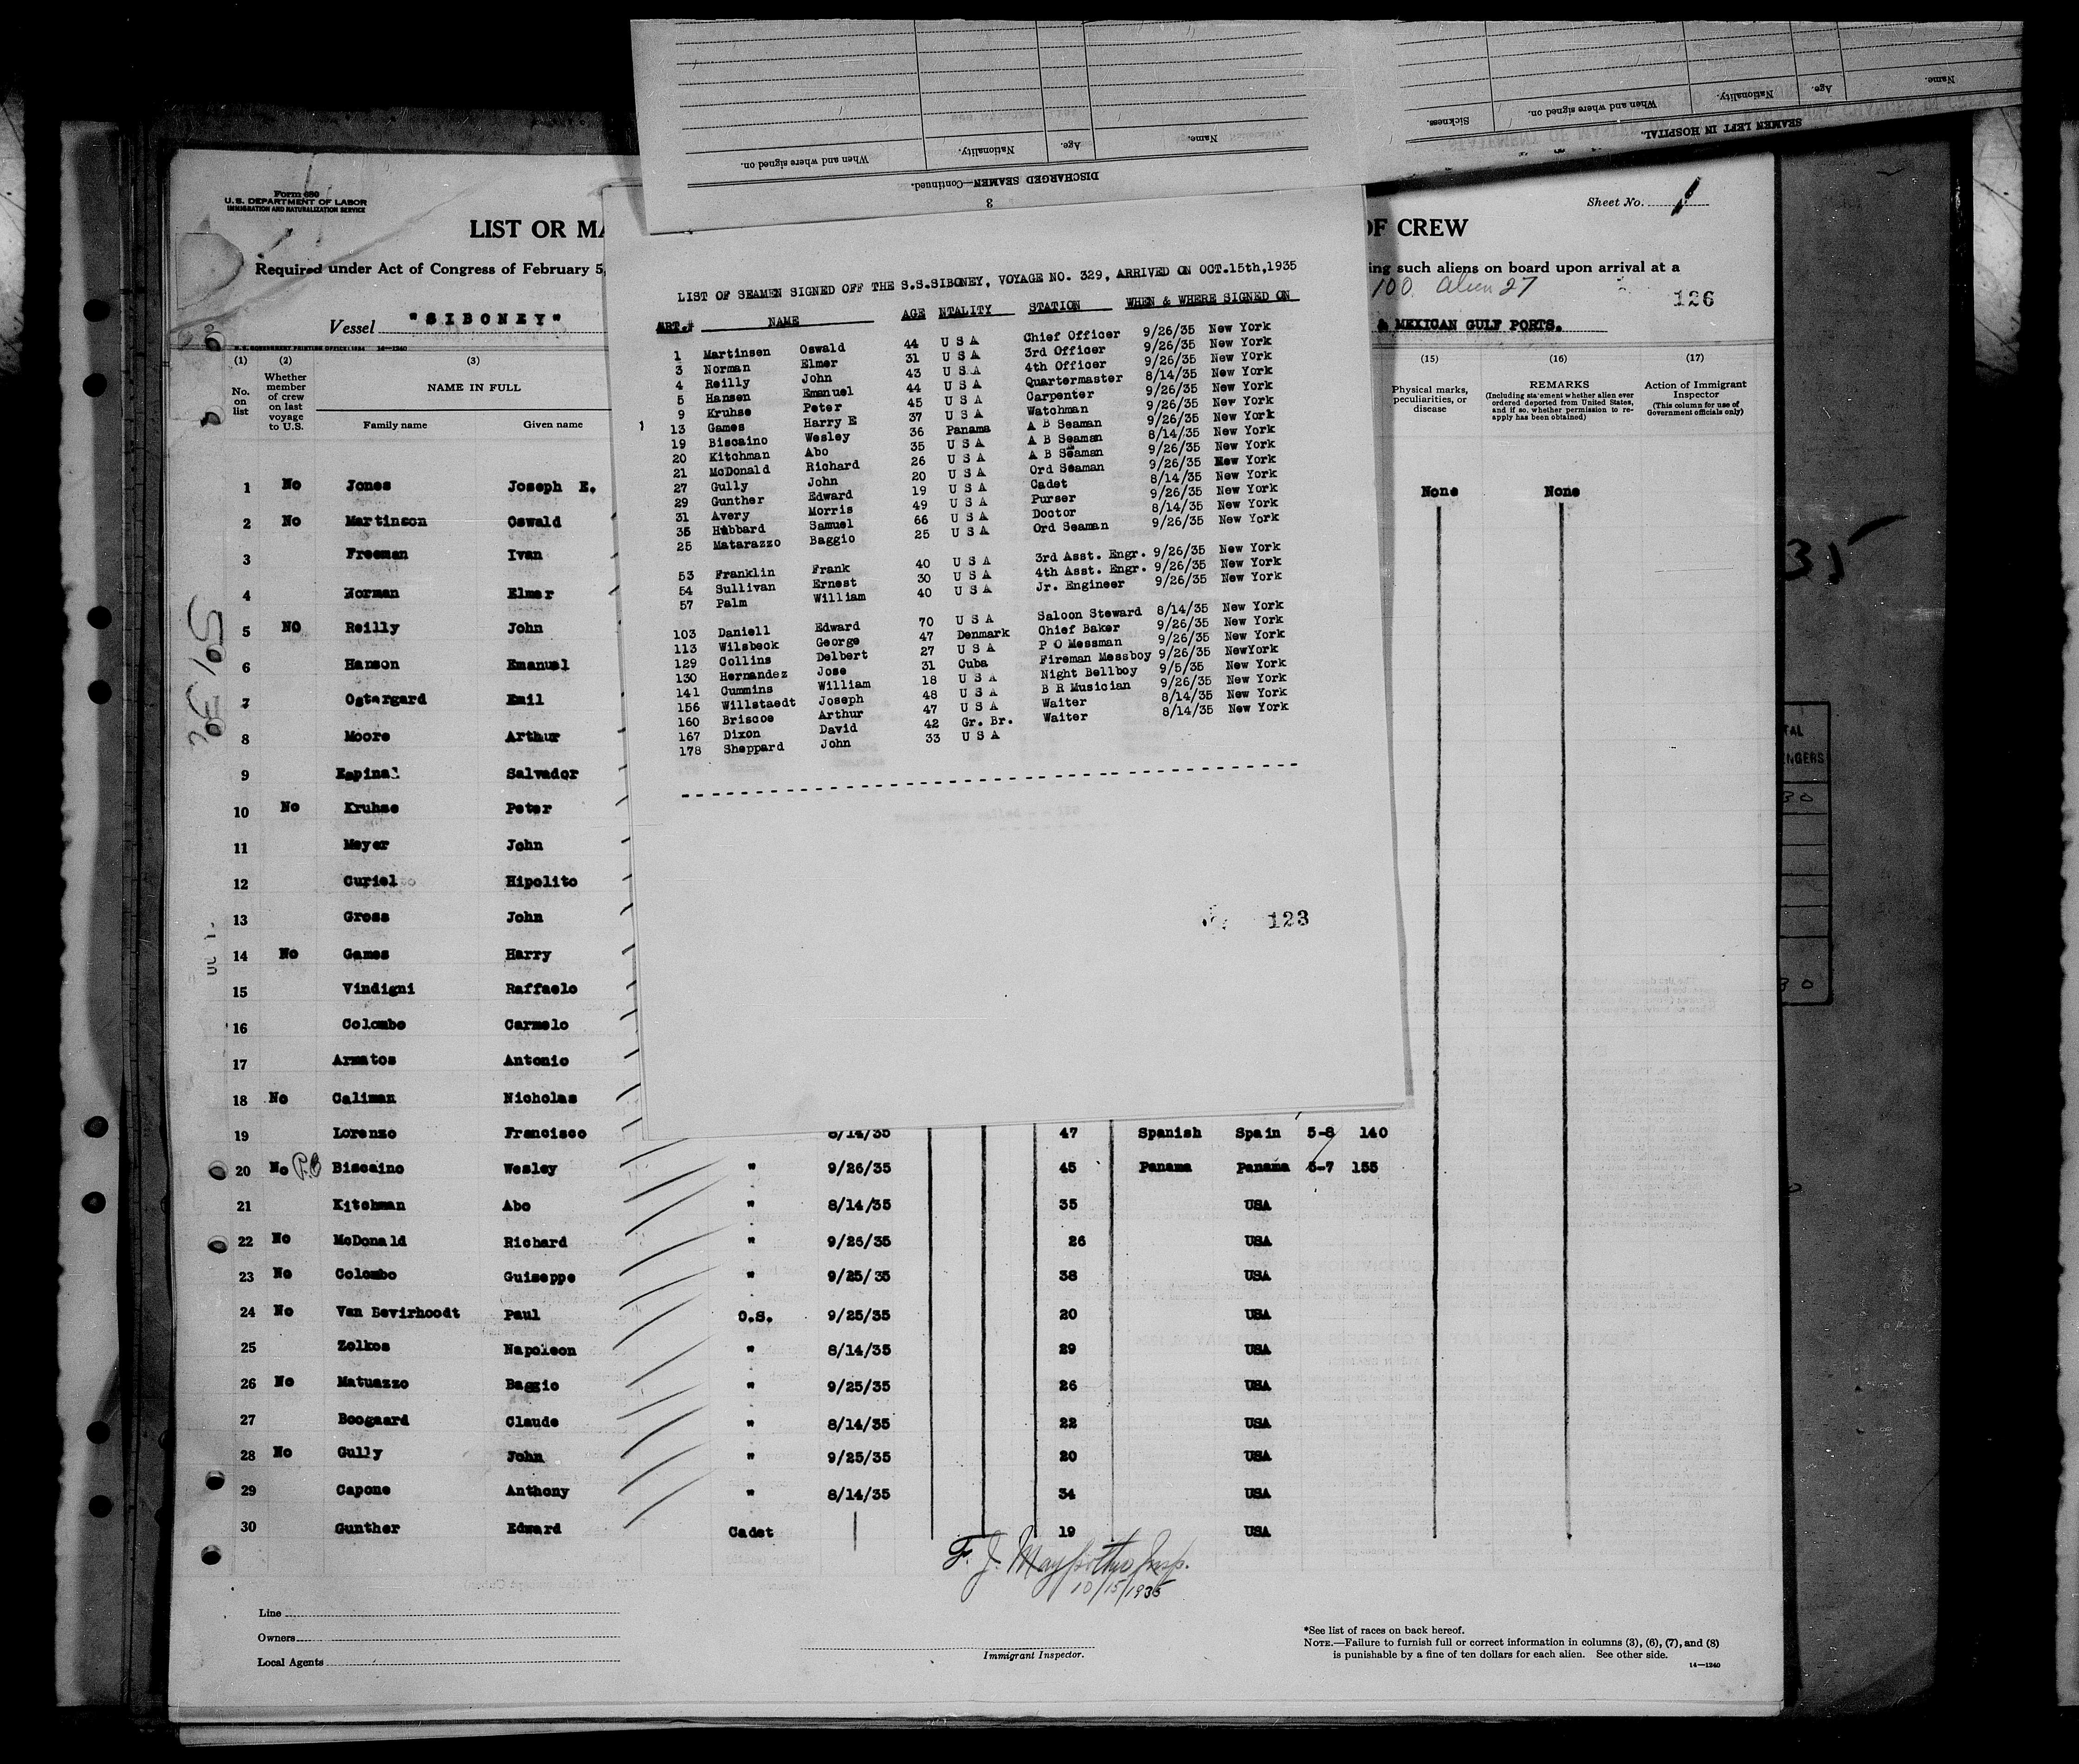 DISCHARGED SEAMEN—Continued.
3
Name.
Age.
Nationality.
When and where signed on.
SEAMEN LEFT IN HOSPITAL.
Name.
Age.
Nationality.
When and where signed on.
Sickness.
Form 680
U. S. DEPARTMENT OF LABOR
IMMIGRATION AND NATURALIZATION SERVICE
Sheet No. 1
LIST OR MA
OF CREW
Required under Act of Congress of February 5,
ing such aliens on board upon arrival at a
100 Alien 27
126
Vessel "SIBONEY"
& MEXICAN GULF PORTS.
U. S. GOVERNMENT PRINTING OFFICE: 1934 14—1240
LIST OF SEAMEN SIGNED OFF THE S.S.SIBONEY, VOYAGE NO. 329, ARRIVED ON OCT.15th,1935
ART.# NAME AGE NTALITY STATION WHEN & WHERE SIGNED ON
1 Martinsen Oswald 44 U S A Chief Officer 9/26/35 New York
3 Norman Elmer 31 U S A 3rd Officer 9/26/35 New York
4 Reilly John 43 U S A 4th Officer 9/26/35 New York
5 Hansen Emanuel 44 U S A Quartermaster 8/14/35 New York
9 Kruhse Peter 45 U S A Carpenter 9/26/35 New York
13 Games Harry E 37 U S A Watchman 9/26/35 New York
19 Biscaino Wesley 36 Panama A B Seaman 9/26/35 New York
20 Kitchman Abo 35 U S A A B Seaman 8/14/35 New York
21 McDonald Richard 26 U S A A B Seaman 9/26/35 New York
27 Gully John 20 U S A Ord Seaman 9/26/35 New York
29 Gunther Edward 19 U S A Cadet 8/14/35 New York
31 Avery Morris 49 U S A Purser 9/26/35 New York
35 Hubbard Samuel 66 U S A Doctor 8/14/35 New York
25 Matarazzo Baggio 25 U S A Ord Seaman 9/26/35 New York
53 Franklin Frank 40 U S A 3rd Asst. Engr. 9/26/35 New York
54 Sullivan Ernest 30 U S A 4th Asst. Engr. 9/26/35 New York
57 Palm William 40 U S A Jr. Engineer 9/26/35 New York
103 Daniell Edward 70 U S A Saloon Steward 8/14/35 New York
113 Wilsbeck George 47 Denmark Chief Baker 9/26/35 New York
129 Collins Delbert 27 U S A P O Messman 9/26/35 New York
130 Hernandez Jose 31 Cuba Fireman Messboy 9/26/35 NewYork
141 Cummins William 18 U S A Night Bellboy 9/5/35 New York
156 Willstaedt Joseph 48 U S A B R Musician 9/26/35 New York
160 Briscoe Arthur 47 U S A Waiter 8/14/35 New York
167 Dixon David 42 Gr. Br. Waiter 8/14/35 New York
178 Sheppard John 33 U S A
123
(1) (2) (3) (15) (16) (17)
No. on list
Whether member of crew on last voyage to U.S.
NAME IN FULL
Family name Given name
Physical marks, peculiarities, or disease
REMARKS
(Including statement whether alien ever ordered deported from United States, and if so, whether permission to re-apply has been obtained)
Action of Immigrant Inspector
(This column for use of Government officials only)
1 No Jones Joseph E. None None
2 No Martinson Oswald
3 Freeman Ivan
4 Norman Elmer
5 NO Reilly John
6 Hanson Emanuel
7 Ostergard Emil
8 Moore Arthur
9 Espinal Salvador
10 No Kruhse Peter
11 Meyer John
12 Curiel Hipolito
13 Gross John
14 No Games Harry
15 Vindigni Raffaelo
16 Colombo Carmelo
17 Armatos Antonio
18 No Caliman Nicholas
19 Lorenzo Francisco 8/14/35 47 Spanish Spain 5-8 140
20 No P.B Biscaino Wesley " 9/26/35 45 Panama Panama 5-7 155
21 Kitchman Abo " 8/14/35 35 USA
22 No McDonald Richard " 9/26/35 26 USA
23 No Colombo Guiseppe " 9/25/35 38 USA
24 No Van Bevirhoodt Paul O.S. 9/25/35 20 USA
25 Zolkos Napoleon " 8/14/35 29 USA
26 No Matuazzo Baggio " 9/25/35 26 USA
27 Boogaard Claude " 8/14/35 22 USA
28 No Gully John " 9/25/35 20 USA
29 Capone Anthony " 8/14/35 34 USA
30 Gunther Edward Cadet 19 USA
10/15/1935
Line
Owners
Local Agents
Immigrant Inspector.
*See list of races on back hereof.
NOTE.—Failure to furnish full or correct information in columns (3), (6), (7), and (8)
is punishable by a fine of ten dollars for each alien. See other side.
14—1240
35
TAL
ENGERS
30
30